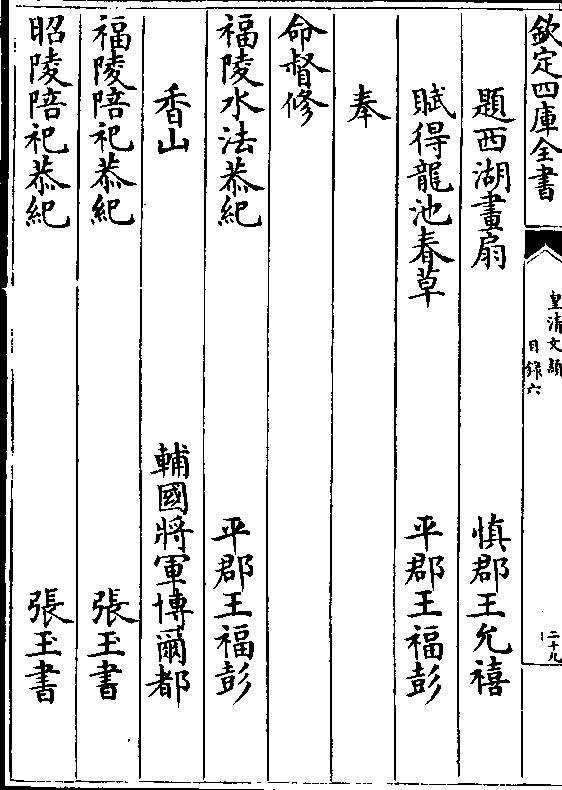 欽定四庫全書
皇清文穎
目錄六
二十九
題西湖畫扇 慎郡王允禧
賦得龍池春草 平郡王福彭
奉
命督修
福陵水法恭紀 平郡王福彭
香山 輔國將軍博爾都
福陵陪祀恭紀 張玉書
昭陵陪祀恭紀 張玉書